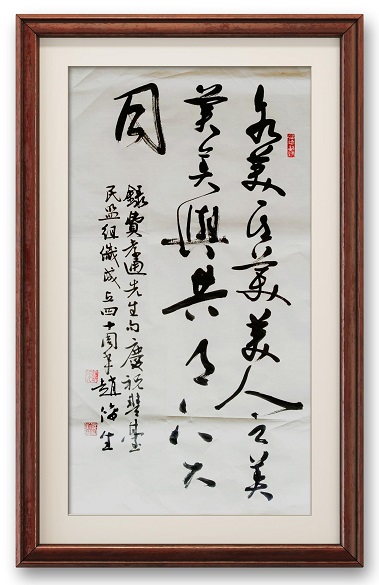 各美其美美人之美
美美與共天下大
同
錄費孝通先生句慶祝豐臺
民盟組織成立四十周年趙生